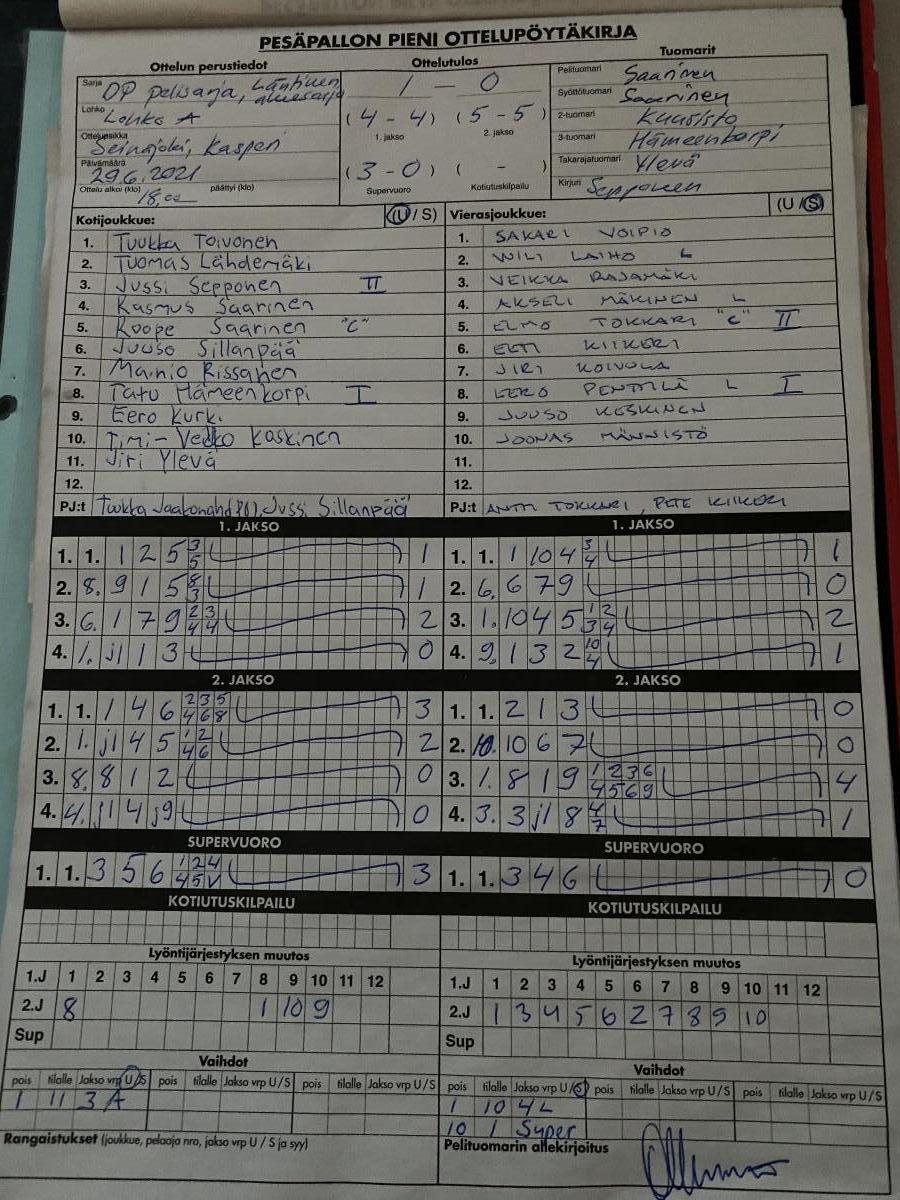 PESÄPALLON PIENI OTTELUPÖYTÄKIRJA
Ottelun perustiedot
Sarja
OP pelisarja, Läntinen
aluesarja
Lohko Lohko A
Ottelupaikka
Seinäjoki, Kasperi
Päivämäärä
29.6.2021
Ottelu alkoi (klo) päättyi (klo)
18,00
Ottelutulos
1 - 0
(4 - 4) (5 - 5)
1. jakso 2. jakso
(3 - 0) ( - )
Supervuoro Kotiutuskilpailu
Tuomarit
Pelituomari Saarinen
Syöttötuomari Saarinen
2-tuomari Kuusisto
3-tuomari Hämeenkorpi
Takarajatuomari Ylevä
Kirjuri Sepponen
Kotijoukkue: (U / S)
1. Tuukka Toivonen
2. Tuomas Lähdemäki
3. Jussi Sepponen II
4. Rasmus Saarinen
5. Roope Saarinen "C"
6. Juuso Sillanpää
7. Mainio Rissanen
8. Tatu Hämeenkorpi I
9. Eero Kurki
10. Timi-Veikko Kaskinen
11. Jiri Ylevä
12.
PJ:t Jussi Sillanpää
Vierasjoukkue: (U / S)
1. SAKARI VOIPIO
2. WILI LAIHO L
3. VEIKKA RAJAMÄKI
4. AKSELI MÄKINEN L
5. ELMO TOKKARI "C" II
6. EETI KIIKERI
7. JIRI KOIVULA
8. EERO PENTTILÄ L I
9. JUUSO KESKINEN
10. JOONAS MÄNNISTÖ
11.
12.
PJ:t ANTTI TOKKARI, PETE KIIKERI
1. JAKSO
1. 1. 1 2 5 3/5 1
2. 8. 9 1 5 8/3 1
3. 6. 1 7 9 2/4 3/4 2
4. 1. j1 1 3 0
2. JAKSO
1. 1. 1 4 6 2/4 3/6 5/8 3
2. 1. j1 4 5 1/4 2/6 2
3. 8. 8 1 2 0
4. 4. j1 4 j9 0
SUPERVUORO
1. 1. 3 5 6 1/4 2/5 4/V 3
KOTIUTUSKILPAILU
Lyöntijärjestyksen muutos
1.J 1 2 3 4 5 6 7 8 9 10 11 12
2.J 8 1 10 9
Sup
Vaihdot
pois tilalle Jakso vrp U/S pois tilalle Jakso vrp U / S pois tilalle Jakso vrp U / S
1 11 3 A
Rangaistukset (joukkue, pelaaja nro, jakso vrp U / S ja syy)
1. JAKSO
1. 1. 1 10 4 3/4 1
2. 6. 6 7 9 0
3. 1. 10 4 5 1/3 2/4 2
4. 9. 1 3 2 10/4 1
2. JAKSO
1. 1. 2 1 3 0
2. 10. 10 6 7 0
3. 1. 8 1 9 1/4 2/5 3/6 6/9 4
4. 3. 3 j1 8 4/7 1
SUPERVUORO
1. 1. 3 4 6 0
KOTIUTUSKILPAILU
Lyöntijärjestyksen muutos
1.J 1 2 3 4 5 6 7 8 9 10 11 12
2.J 1 3 4 5 6 2 7 8 9 10
Sup
Vaihdot
pois tilalle Jakso vrp U/S pois tilalle Jakso vrp U / S pois tilalle Jakso vrp U / S
1 10 4 L
10 1 Super
Pelituomarin allekirjoitus